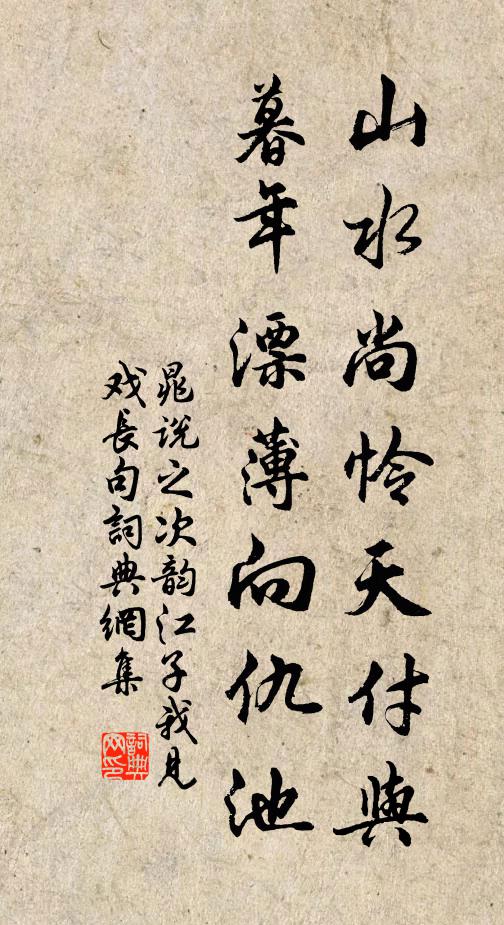 山水尚怜天付與
暮年漂薄向仇池
晁说之次韵江子我見
戏長句詞典網集
詞典
网印